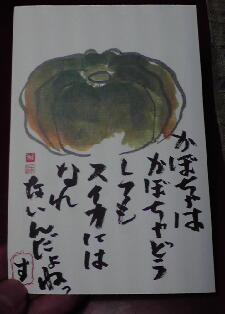 かぼちゃは
かぼちゃどう
しても
スイカには
なれ
ないんだよねっ
す